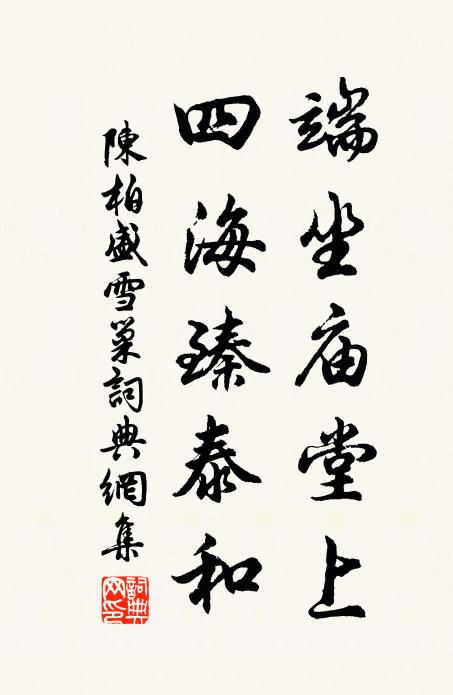 端坐庙堂上
四海臻泰和
陳柏盛雪巢詞典網集
詞典
网印